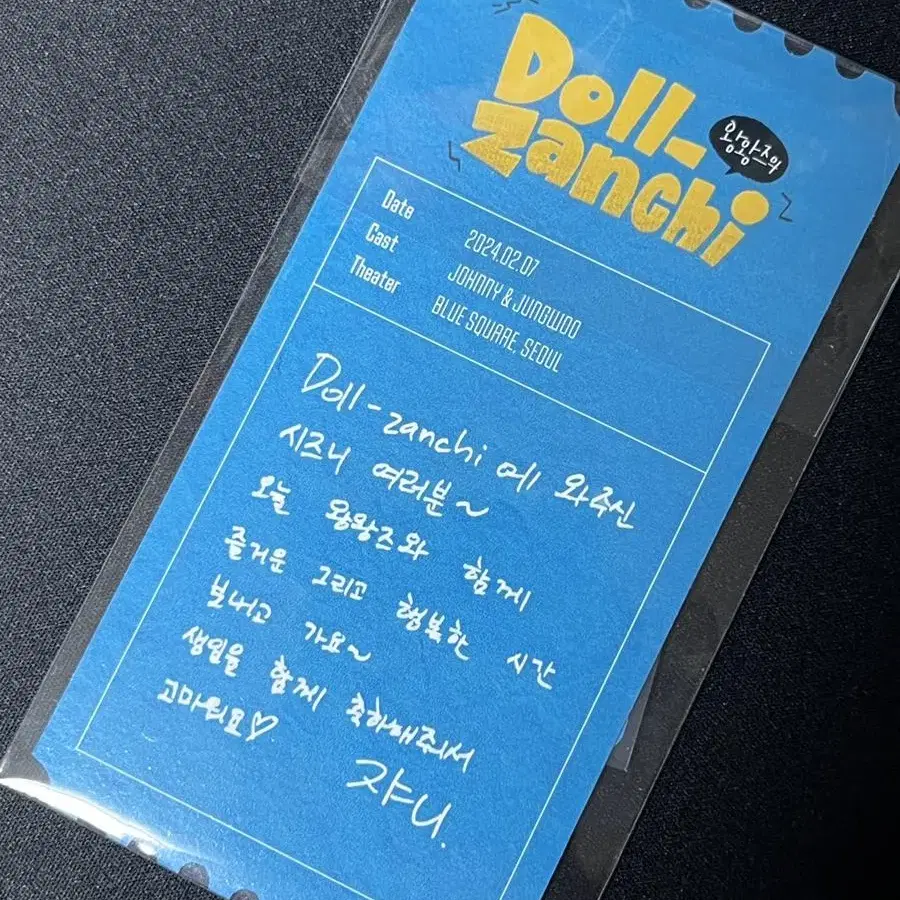 Doll-
zanchi
왕왕즈의
Date 2024.02.07
Cast JOHNNY & JUNGWOO
Theater BLUE SQUARE, SEOUL
Doll-zanchi에 와주신
시즈니 여러분~
오늘 왕왕즈와 함께
즐거운 그리고 행복한 시간
보내고 가요~
생일을 함께 축하해주셔서
고마워요♡
쟈니.